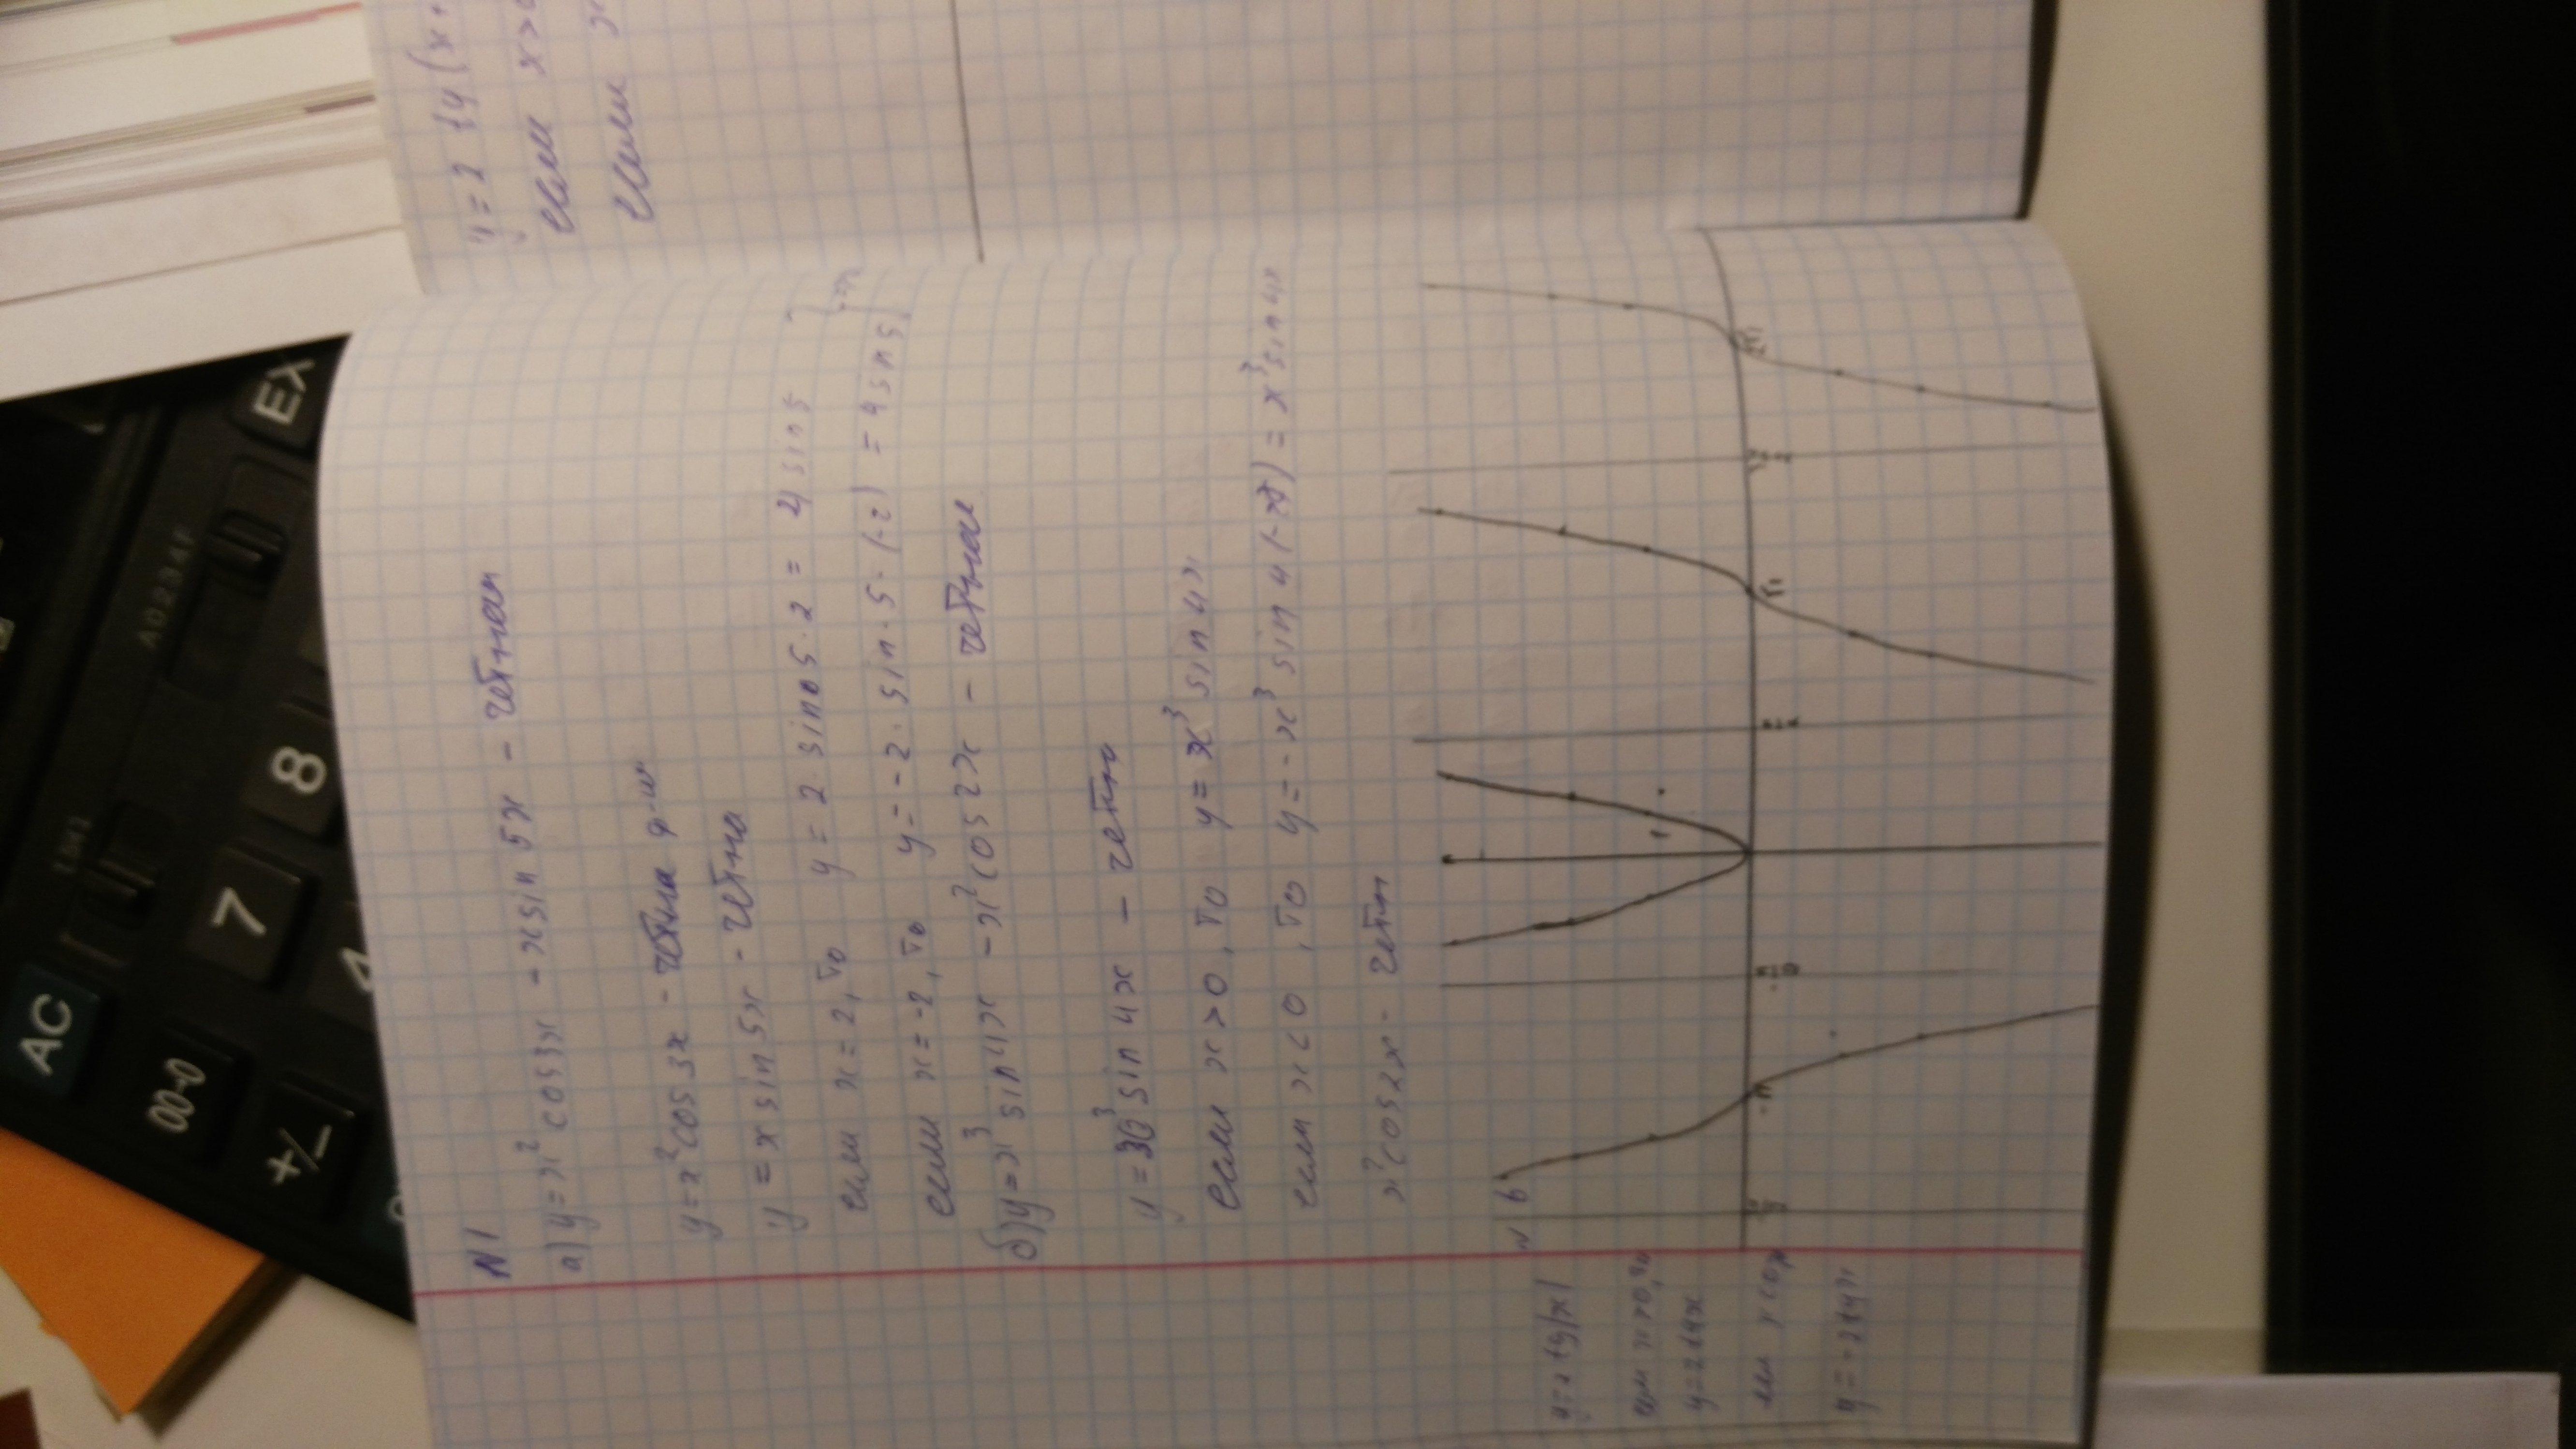 N1
а) y = x² cos 3x - x sin 5x - четная
y = x² cos 3x - четна ф-ия
y = x sin 5x - четна
если x = 2, то y = 2 sin 5·2 = 4 sin 5
если x = -2, то y = -2· sin·5·(-2) = 4 sin 5
б) y = x³ sin 4x - x² cos 2x - четная
sin 4x - четно
если x > 0, то y = x³ sin 4x
если x < 0, то y = -x³ sin 4(-x) = x³ sin 4x
x² cos 2x - четн
y = 2 tg|x|
если x > 0,
y = 2 tg x
если x < 0,
y = -2 tg x
1
-π
π
2π
y = 2 tg(x+
если x > 0
если x
AC
00-0
+/-
7
8
4
EX
A0234F